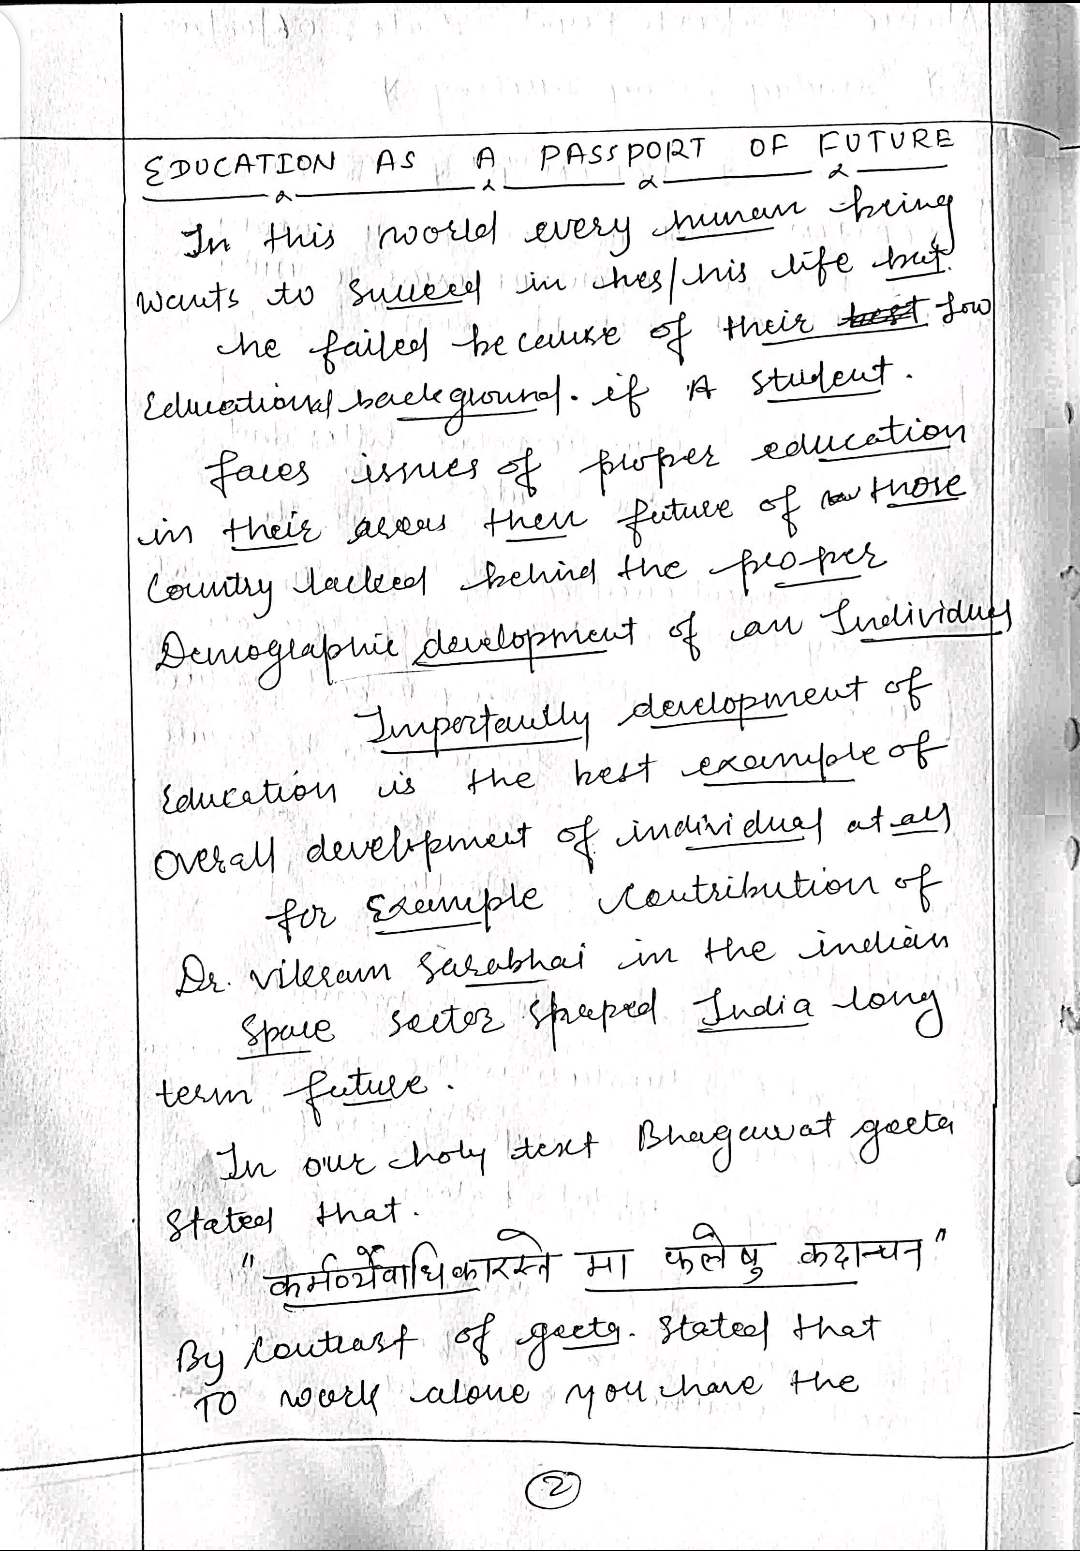 EDUCATION AS A PASSPORT OF FUTURE
In this world every human being
wants to succeed in hes/his life but
he failed because of their best low
Educational background. if A student.
faces issues of proper education
in their areas then future of those
Country lacked behind the proper
Demographic development of an Individual
Importantly development of
Education is the best example of
Overall development of individual at all
for Example Contribution of
Dr. vikram Sarabhai in the indian
Space sector shaped India long
term future.
In our holy text Bhagawat geeta
Stated that.
"कर्मण्येवाधिकारस्ते मा फलेषु कदाचन"
By Contrast of geeta. Stated that
TO work alone you have the
2